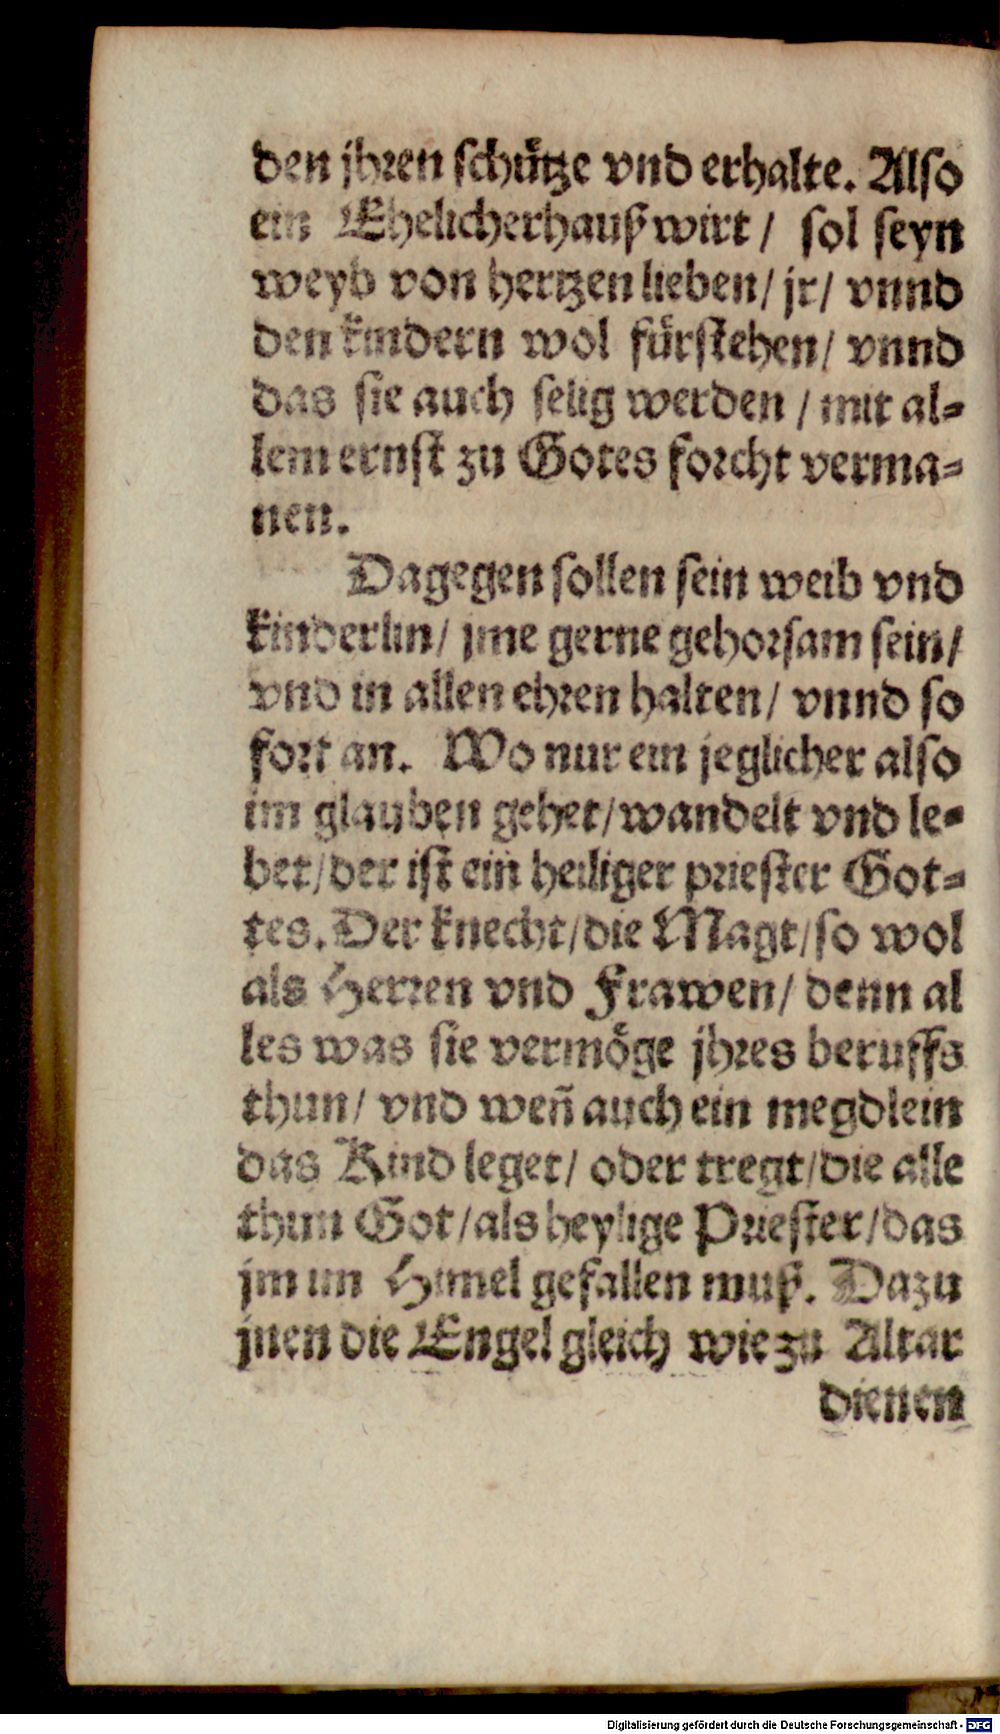 den jhren schuͤtze vnd erhalte. Also
ein Ehelicherhauß wirt / sol seyn
weyb von hertzen lieben / jr / vnnd
den kindern wol fuͤrstehen / vnnd
das sie auch selig werden / mit al⸗
lem ernst zu Gotes forcht verma⸗
nen.
Dagegen sollen sein weib vnd
kinderlin / jme gerne gehorsam sein /
vnd in allen ehren halten / vnnd so
fort an. Wo nur ein jeglicher also
im glauben gehet / wandelt vnd le⸗
bet / der ist ein heiliger priester Got⸗
tes. Der knecht / die Magt / so wol
als Herren vnd Frawen / denn al
les was sie vermoͤge jhres beruffs
thun / vnd weñ auch ein megdlein
das Kind leget / oder tregt / die alle
thun Got / als heylige Priester / das
jm im Himel gefallen muß. Dazu
jnen die Engel gleich wie zu Altar
dienen
Digitalisierung gefördert durch die Deutsche Forschungsgemeinschaft - DFG